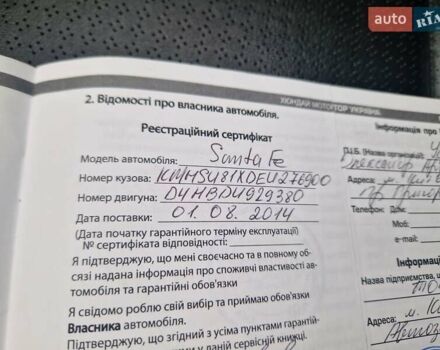 auto RIA
ХЮНДАЙ МОТОР УКРАИНА
2. Відомості про власника автомобіля.
Реєстраційний сертифікат
Модель автомобіля: Santa Fe
Номер кузова: KMHSU81XDEU276900
Номер двигуна: D4HBDU929380
Дата поставки: 01.08.2014
(Дата початку гарантійного терміну експлуатації)
№ сертифіката відповідності:
Я підтверджую, що мені своєчасно та в повному об-
сязі надана інформація про споживчі властивості ав-
томобіля та гарантійні обов'язки
Я свідомо роблю свій вибір та приймаю обов'язки
Власника автомобіля.
Підтверджую, що згідний з усіма пунктами гарантій-
у даній сервісній книжці.
Інформація про
П.І.Б. (Назва організації):
Адреса: м.
Телефон: Дом.:
Моб.:
e-mail:
Інформаці
Назва підприємства, щ
Адреса: м.